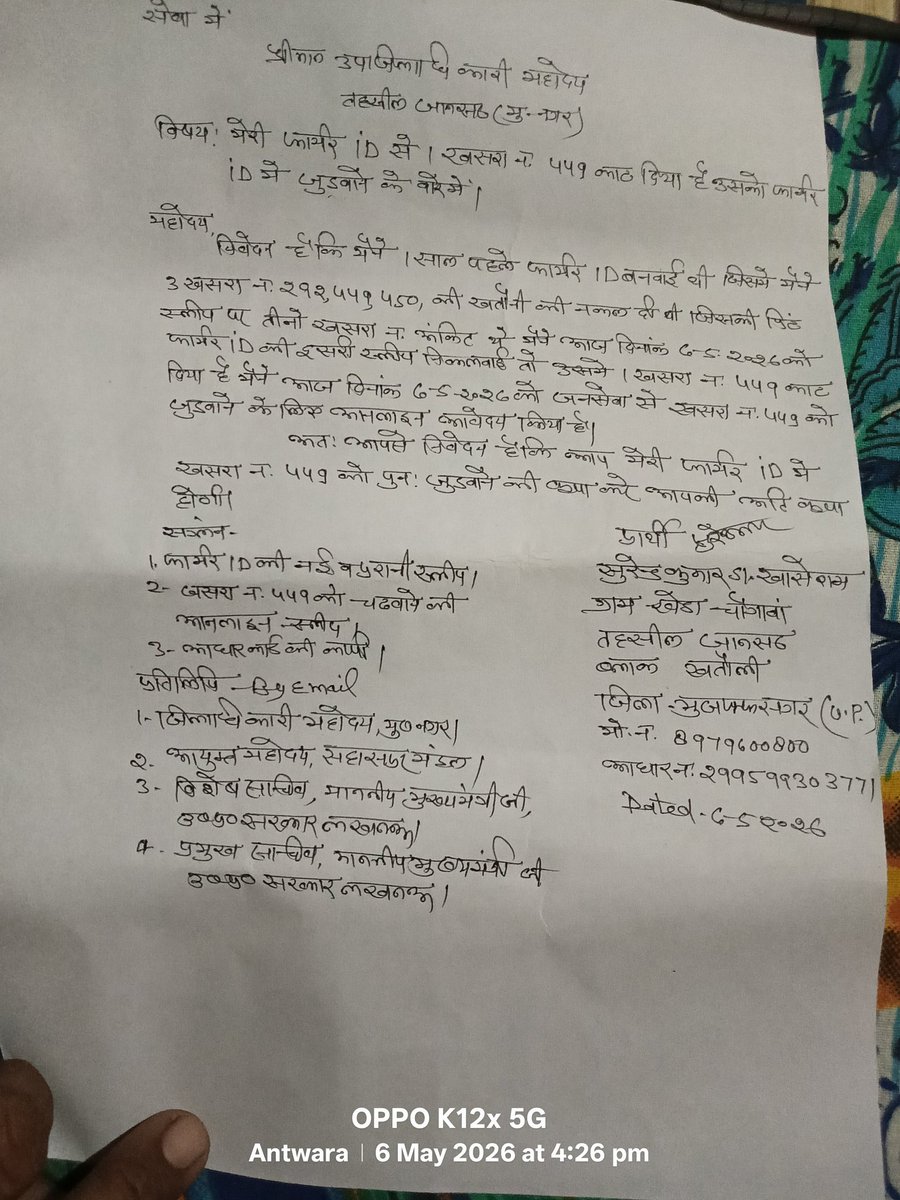 सेवा में
श्रीमान उपाजिलाधिकारी महोदय
तहसील जानसठ (मु० नगर)
विषय: मेरी फार्मर ID से 1 खसरा न. ५५१ काट दिया है उसको फार्मर
ID में जुड़वाने के बारे में।
महोदय,
निवेदन है कि मैंने 1 साल पहले फार्मर ID बनवाई थी जिसमें मैंने
3 खसरा न. २१२,५५१,५५०, की खतौनी की नकल दी थी जिसकी प्रिंट
स्लीप पर तीनो खसरा न. अंकित थे मैंने आज दिनांक 6-5-२०२6 को
फार्मर ID की दूसरी स्लीप निकलवाई तो उसमें 1 खसरा न. ५५१ काट
दिया है मैंने आज दिनांक 6-5-२०२6 को जनसेवा से खसरा न. ५५१ को
जुडवाने के लिए आनलाइन आवेदन किया है।
अतः आपसे निवेदन है कि आप मेरी फार्मर ID में
खसरा न. ५५१ को पुनः जुडवाने की कृपा करे आपकी अति कृपा
होगी।
संलग्न-
1. फार्मर ID की नई व पुरानी स्लीप।
2- खसरा न. ५५१ को चढवाने की
आनलाइन स्लीप।
3- आधार कार्ड की कापी।
प्रतिलिपि - By Email
1- जिलाधिकारी महोदय, मु० नगर।
2. आयुक्त महोदय, सहारनपुर मंडल।
3- विशेष सचिव, माननीय मुख्यमंत्री जी,
उ०प्र० सरकार लखनऊ।
4. प्रमुख सचिव, माननीय मुख्यमंत्री जी
उ०प्र० सरकार लखनऊ।
प्रार्थी
सुरेन्द्र कुमार S/o खासेराम
ग्राम - खेडा - चौगावां
तहसील जानसठ
ब्लाक खतौली
जिला - मुजफ्फरनगर (U.P.)
मो. न. 8979600800
आधार न. २99599303771
Dated - 6-5 २०२6
OPPO K12x 5G
Antwara | 6 May 2026 at 4:26 pm